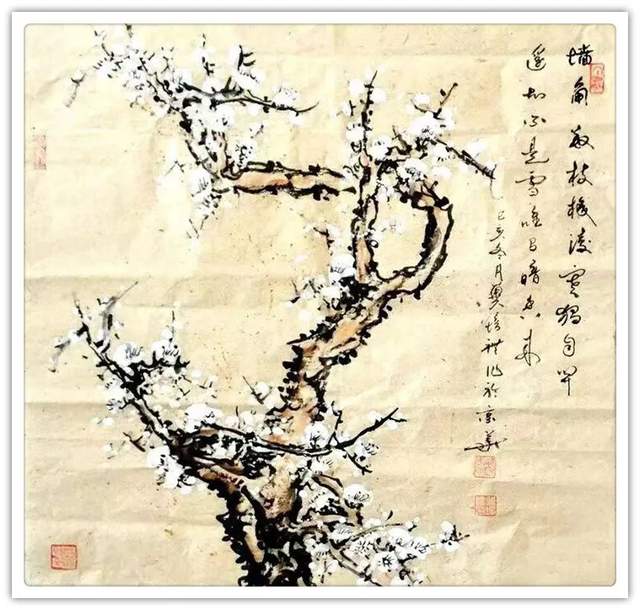 墙角数枝梅凌寒独自开
遥知不是雪唯有暗香来
己亥冬月作於京